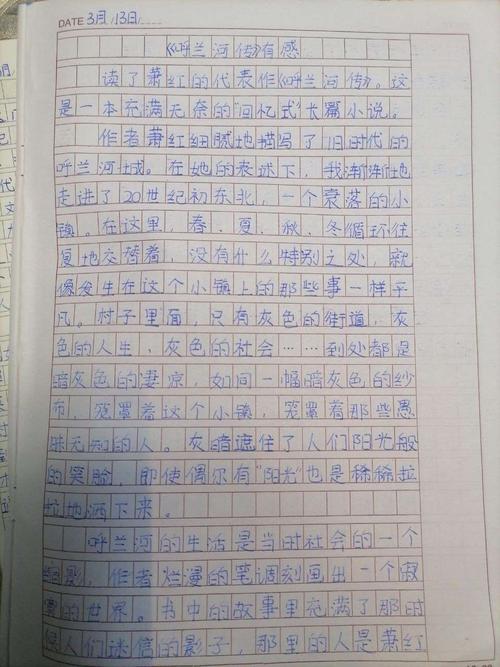 DATE 3月13日
《呼兰河传》有感
读了萧红的代表作《呼兰河传》。这
是一本充满无奈的"回忆式"长篇小说。
作者萧红细腻地描写了旧时代的
呼兰河城。在她的表述下，我渐渐地
走进了20世纪初东北，一个衰落的小
镇。在这里，春、夏、秋、冬循环往
复地交替着，没有什么特别之处，就
像发生在这个小镇上的那些事一样平
凡。村子里面，只有灰色的街道，灰
色的人生、灰色的社会……到处都是
暗灰色的凄凉，如同一幅暗灰色的纱
布，笼罩着这个小镇，笼罩着那些愚
昧无知的人。灰暗遮住了人们阳光般
的笑脸，即使偶尔有"阳光"也是稀稀拉
拉地洒下来。
呼兰河的生活是当时社会的一个
缩影，作者烂漫的笔调刻画出一个寂
寞的世界。书中的故事里充满了那时
候人们迷信的影子，那里的人是萧红